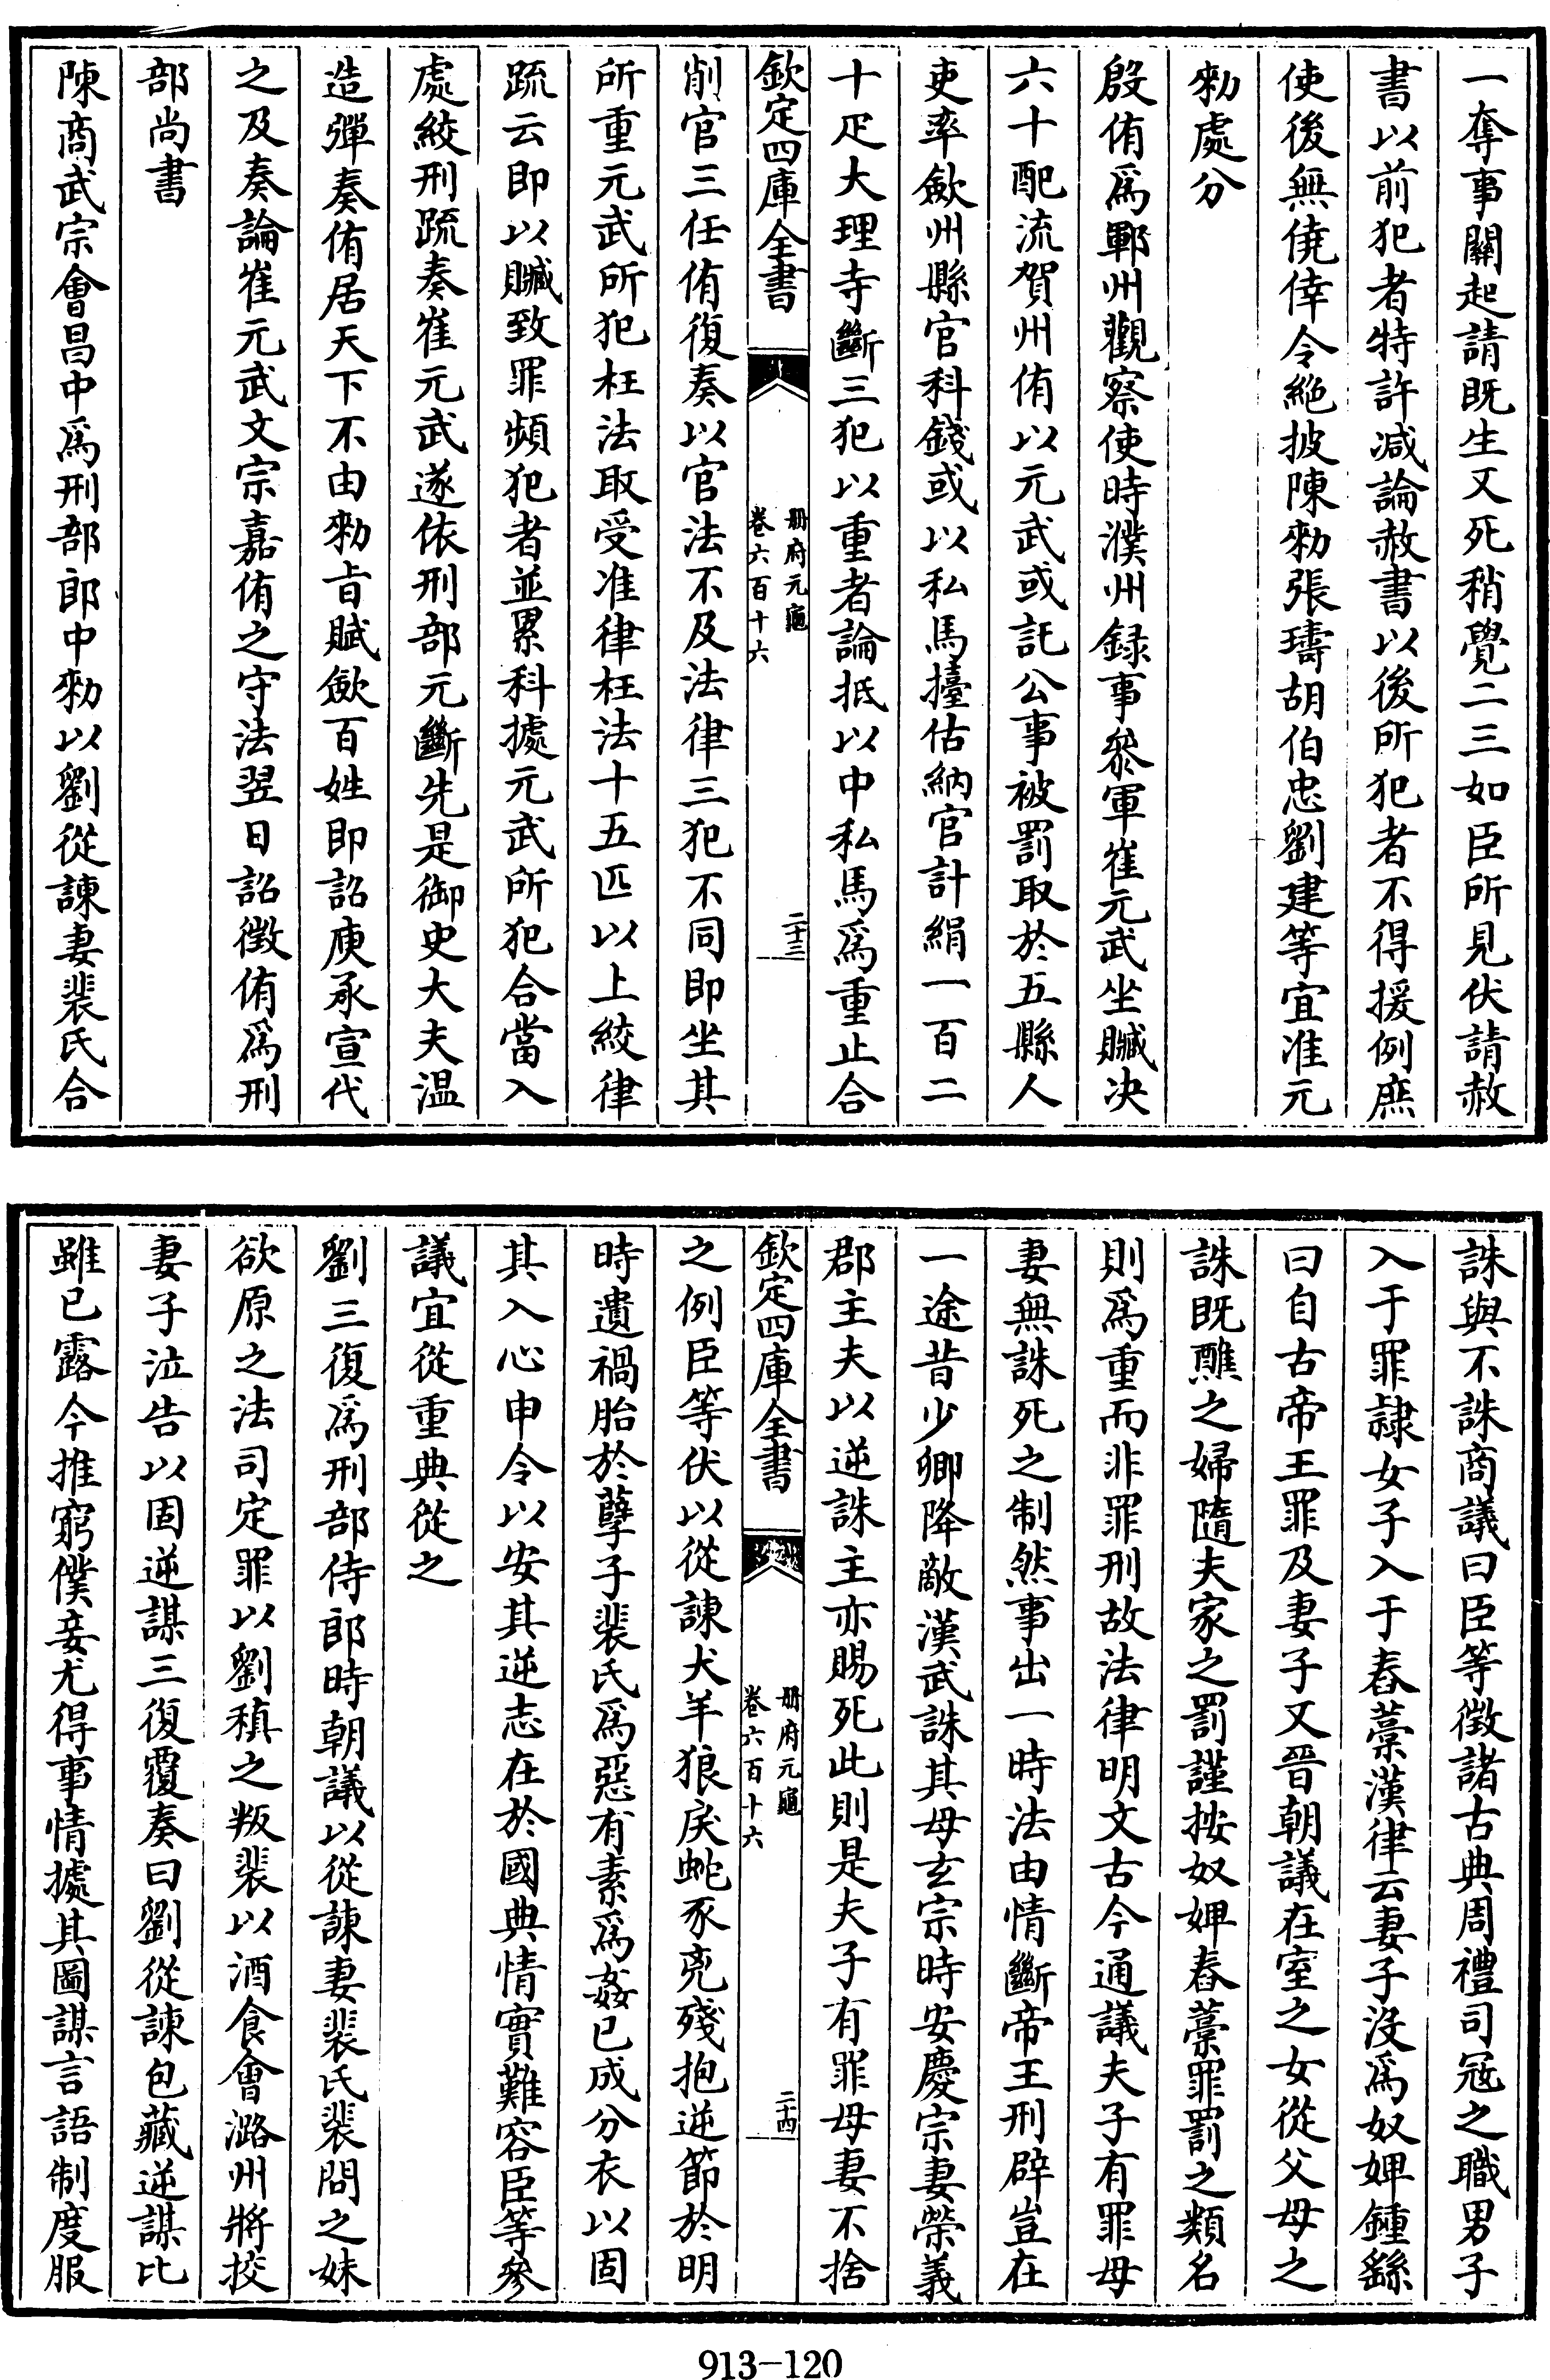 一奪事關起請既生又死稍覺二三如臣所見伏請赦
書以前犯者特許减論赦書以後所犯者不得援例庶
使後無僥倖令絶披陳勑張璹胡伯忠劉建等宜准元
勑處分
殷侑爲鄆州觀察使時濮州録事叅軍崔元武坐贓决
六十配流賀州侑以元武或託公事被罰取於五縣人
吏率歛州縣官科錢或以私馬擡估納官計絹一百二
十疋大理寺斷三犯以重者論抵以中私馬爲重止合
欽定四庫全書
册府元龜
卷六百十六
二十三
削官三任侑復奏以官法不及法律三犯不同即坐其
所重元武所犯枉法取受准律枉法十五匹以上絞律
疏云即以贓致罪頻犯者並累科據元武所犯合當入
處絞刑疏奏崔元武遂依刑部元斷先是御史大夫温
造彈奏侑居天下不由勑㫖賦歛百姓即詔庾承宣代
之及奏論崔元武文宗嘉侑之守法翌日詔徵侑爲刑
部尚書
陳商武宗會昌中爲刑部郎中勑以劉從諫妻裴氏合
誅與不誅商議曰臣等徵諸古典周禮司宼之職男子
入于罪隷女子入于舂藁漢律云妻子没爲奴婢鍾繇
曰自古帝王罪及妻子又晉朝議在室之女從父母之
誅既醮之婦隨夫家之罰謹按奴婢舂藁罪罰之類名
則爲重而非罪刑故法律明文古今通議夫子有罪母
妻無誅死之制然事出一時法由情斷帝王刑辟豈在
一途昔少卿降敵漢武誅其母玄宗時安慶宗妻榮義
郡主夫以逆誅主亦賜死此則是夫子有罪母妻不捨
欽定四庫全書
册府元龜
卷六百十六
二十四
之例臣等伏以從諫犬羊狼戾虵豕兇殘抱逆節於明
時遺禍胎於孽子裴氏爲惡有素爲姦已成分衣以固
其入心申令以安其逆志在於國典情實難容臣等叅
議宜從重典從之
劉三復爲刑部侍郎時朝議以從諫妻裴氏裴問之妹
欲原之法司定罪以劉稹之叛裴以酒食會潞州將挍
妻子泣告以固逆謀三復覆奏曰劉從諫包藏逆謀比
雖已露今推窮僕妾尤得事情據其圖謀言語制度服
913-120